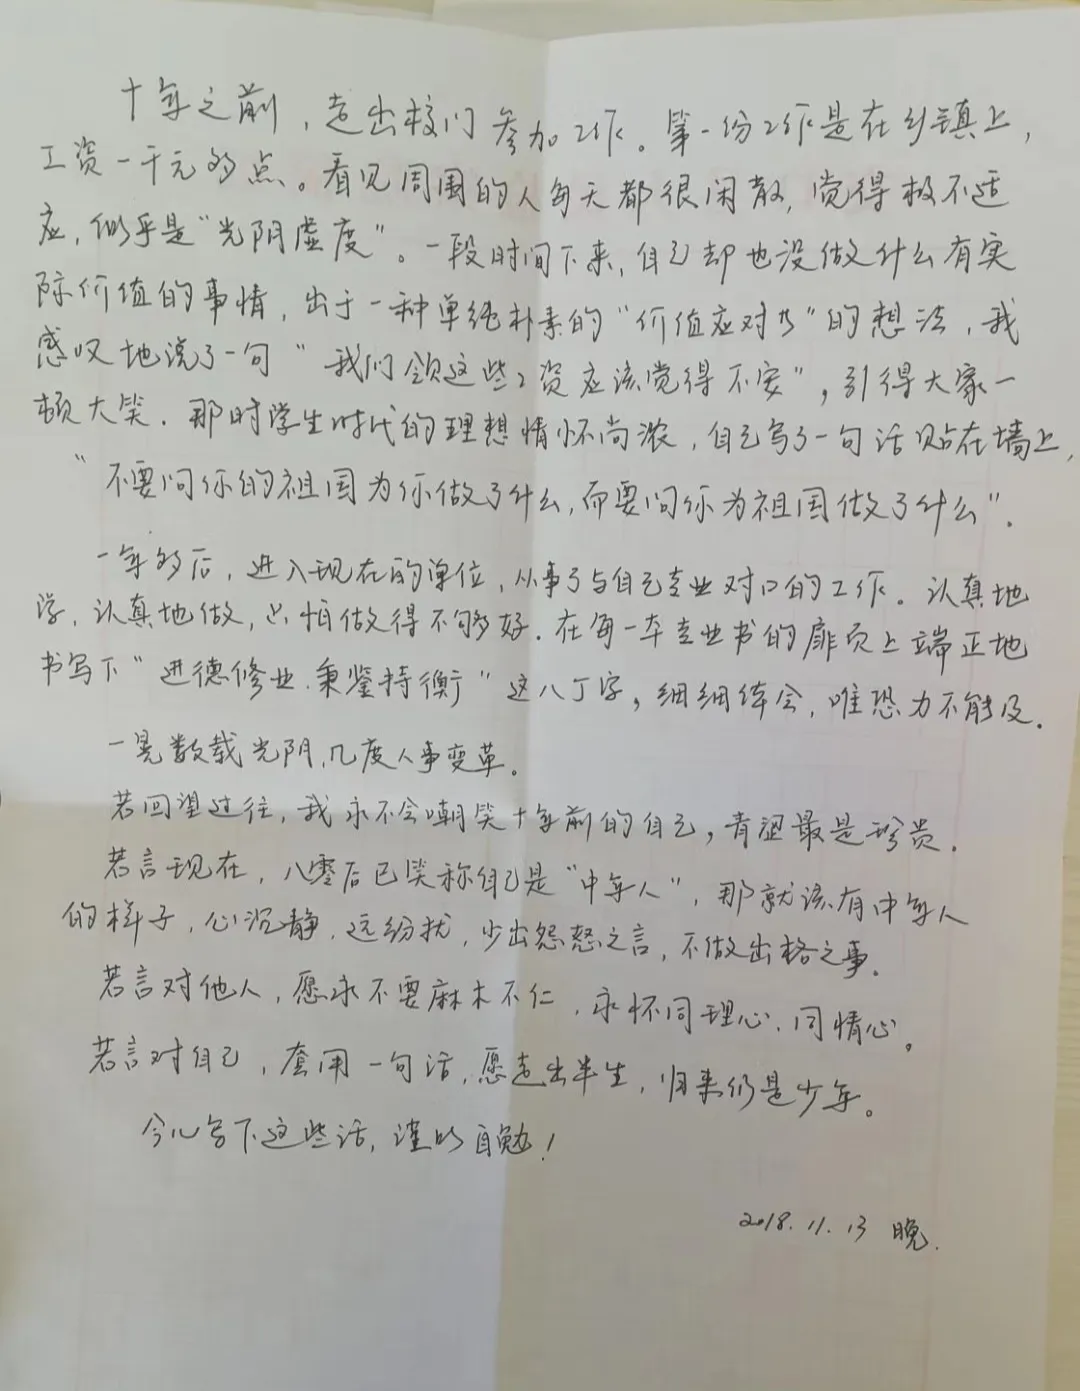 十年之前，走出校门参加工作。第一份工作是在乡镇上，
工资一千元多点。看见周围的人每天都很闲散，觉得极不适
应，似乎是“光阴虚度”。一段时间下来，自己却也没做什么有实
际价值的事情，出于一种单纯朴素的“价值应对等”的想法，我
感叹地说了一句“我们领这些工资应该觉得不安”，引得大家一
顿大笑．那时学生时代的理想情怀尚浓，自己写了一句话贴在墙上，
“不要问你的祖国为你做了什么，而要问你为祖国做了什么”．
一年多后，进入现在的单位，从事了与自己专业对口的工作。认真地
学，认真地做，只怕做得不够好．在每一本专业书的扉页上端正地
书写下“进德修业．秉鉴持衡”这八个字，细细体会，唯恐力不能及．
一晃数载光阴，几度人事变革。
若回望过往，我永不会嘲笑十年前的自己，青涩最是珍贵．
若言现在，八零后已笑称自己是“中年人”，那就该有中年人
的样子，心沉静．远纷扰，少出怨怒之言，不做出格之事．
若言对他人，愿永不要麻木不仁．永怀同理心．同情心。
若言对自己，套用一句话，愿走出半生，归来仍是少年。
今儿写下这些话，谨以自勉！
2018.11.13 晚．